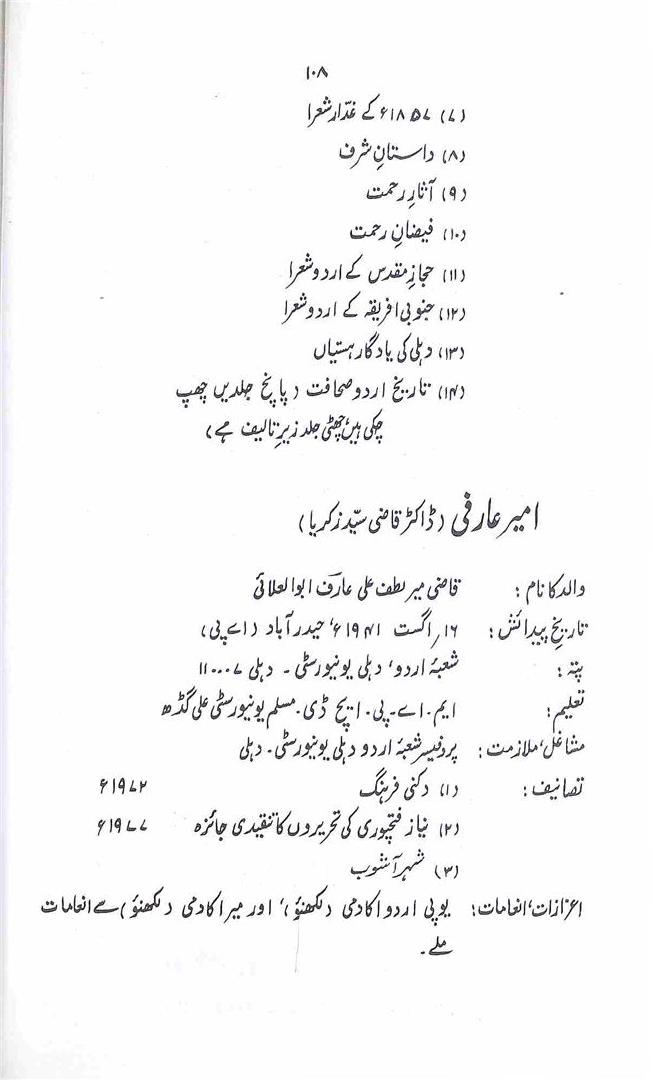 ۱۰۸
(۷) ۱۸۵۷ء کے غدّار شعرا
(۸) داستانِ شرف
(۹) آثارِ رحمت
(۱۰) فیضانِ رحمت
(۱۱) حجازِ مقدس کے اردو شعرا
(۱۲) جنوبی افریقہ کے اردو شعرا
(۱۳) دہلی کی یادگار ہستیاں
(۱۴) تاریخ اردو صحافت (پانچ جلدیں چھپ
چکی ہیں، چھٹی جلد زیرِ تالیف ہے)
امیر عارفی (ڈاکٹر قاضی سیّد زکریا)
والد کا نام: قاضی میر لطف علی عارفؔ ابوالعلائی
تاریخِ پیدائش: ۱۶؍ اگست ۱۹۴۱ء، حیدر آباد (اے پی)
پتہ: شعبۂ اردو، دہلی یونیورسٹی۔ دہلی ۱۱۰۰۰۷
تعلیم: ایم۔اے۔پی۔ایچ ڈی۔مسلم یونیورسٹی علی گڈھ
مشاغل، ملازمت: پروفیسر شعبۂ اردو دہلی یونیورسٹی۔ دہلی
تصانیف: (۱) دکنی فرہنگ ۱۹۷۲ء
(۲) نیاز فتحپوری کی تحریروں کا تنقیدی جائزہ ۱۹۷۷ء
(۳) شہر آشوب
اعزازات، انعامات: یوپی اردو اکادمی (لکھنؤ)، اور میر اکادمی (لکھنؤ) سے انعامات
ملے۔